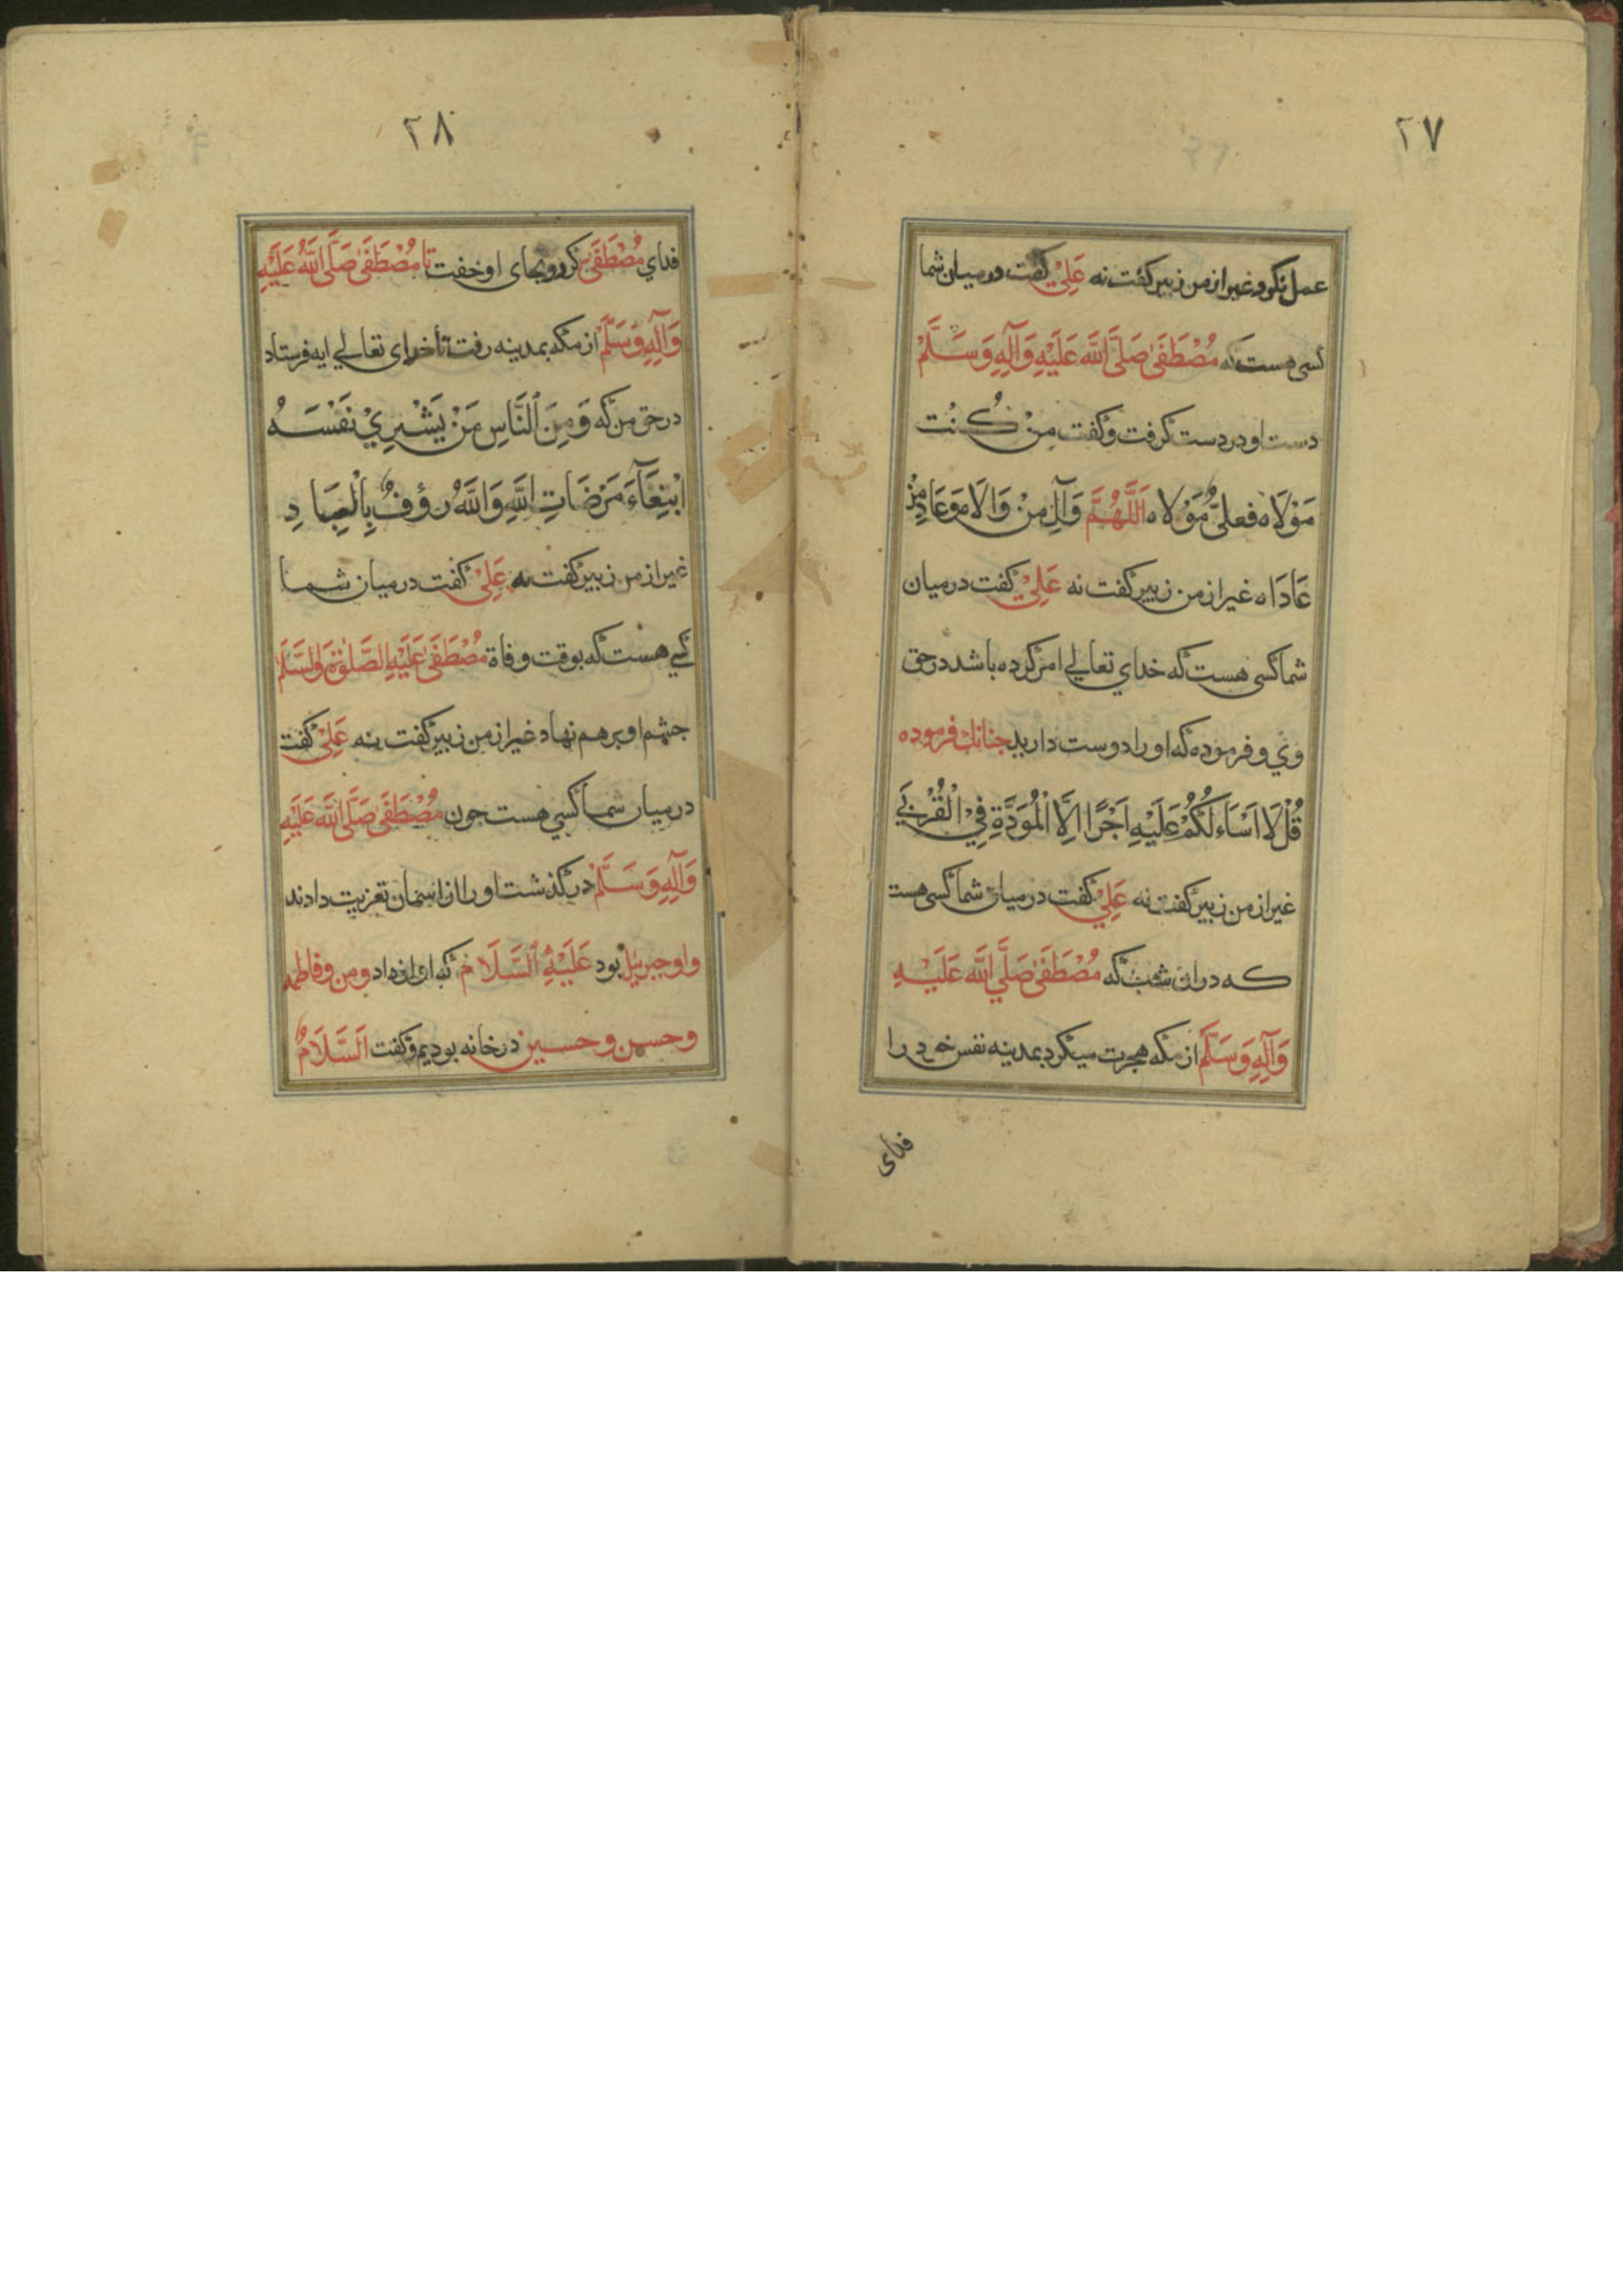 ٢٧
عمل نكرد غير از من زبير كفت نه عَلِيْ كفت در ميان شما
كسى هست كه مُصْطَفَىٰ صَلَّى اللَّه عَلَيْهِ وَآلِهِ وَسَلَّمْ
دست او در دست كرفت وكفت مِنْ كُنْت
مَوْلَاه فعليٌّ مَوْلاه اَللَّهُمَّ وَآلِ مِنْ وَالَاه وَعَادِ مِنْ
عَادَاه غير از من زبير كفت نه عَلِيْ كفت در ميان
شما كسى هست كه خداي تعالي امر كرده باشد در حق
وي و فرموده كه او را دوست داريد جنانك فرموده
قُلْ لَا اَسَاءلَكُمْ عَلَيْهِ اَجْرًا اِلَّا الْمُوَدَّةِ فِيْ الْقُرْبَي
غير از من زبير كفت نه عَلِيْ كفت در ميان شما كسى هست
كه در ان شب كه مُصْطَفَىٰ صَلَّي اللَّه عَلَيْهِ
وَآلِهِ وَسَلَّم از مكه هجرت ميكرد بمدينه نفس خود را
فداى
٢٨
فداي مُصْطَفَىٰ كرد وبجاى او خفت تا مُصْطَفَىٰ صَلَّى اللَّهُ عَلَيْهِ
وَآلِهِ وَسَلَّمْ از مكه بمدينه رفت تا خداى تعالي ايه فرستاد
در حق من كه وَمِنَ النَّاسِ مَنْ يَشْتِرِيْ نَفْسَهُ
ابْتِغَآءَ مَرْضَاتِ اللَّهِ وَاللَّهُ رؤفٌ بِالْعِبَادِ
غير از من زبير كفت نه عَلِيْ كفت در ميان شما
كسي هست كه بوقت وفاة مُصْطَفَىٰ عَلَيْهِ الصَّلوٰة وَالسَّلَم
جشم او بر هم نهاد غير از من زبير كفت نه عَلِيْ كفت
در ميان شما كسي هست جون مُصْطَفَىٰ صَلَّى اللَّه عَلَيْهِ
وَآلِهِ وَسَلَّمْ در كذشت او را از اسمان تعزيت دادند
واو جبريل بود عَلَيْهِ السَّلَام كه اواز داد ومن وفاطمه
وحسن وحسين در خانه بوديم وكفت اَلسَّلَامُ